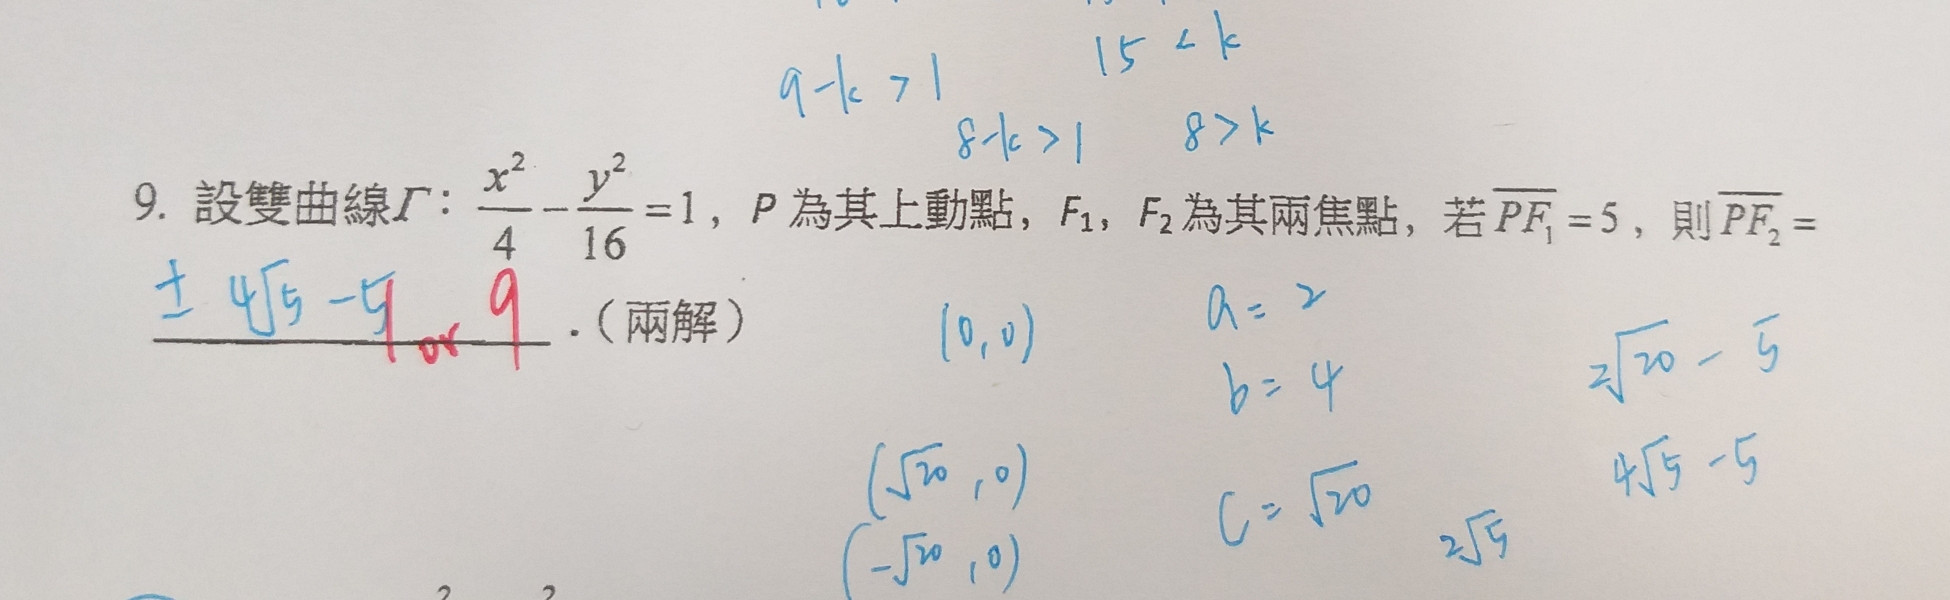 9-k > 1
15 < k
8-k > 1
8 > k
9. 設雙曲線Γ： x²/4 - y²/16 = 1，P 為其上動點，F₁，F₂ 為其兩焦點，若 PF₁ = 5，則 PF₂ =
± 4√5 - 5 1 or 9 .（兩解）
(0,0)
a = 2
b = 4
2√20 - 5
(√20, 0)
c = √20
4√5 - 5
2√5
(-√20, 0)